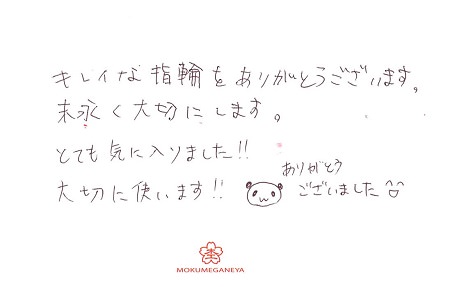 キレイな指輪をありがとうございます。
末永く大切にします。
とても気に入りました!!
大切に使います!!
ありがとう
ございました^^
MOKUMEGANEYA